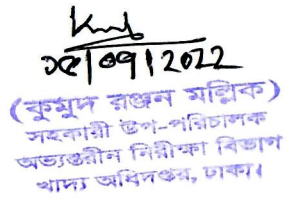 ০৫|০৭|2022
(কুমুদ রঞ্জন মল্লিক)
সহকারী উপ-পরিচালক
অভ্যন্তরীন নিরীক্ষা বিভাগ
খাদ্য অধিদপ্তর, ঢাকা।